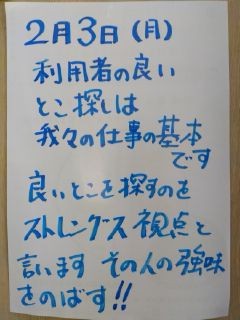 2月3日(月)
利用者の良い
とこ探しは
我々の仕事の基本
です
良いとこを探すのを
ストレングス視点と
言います その人の強味
をのばす!!